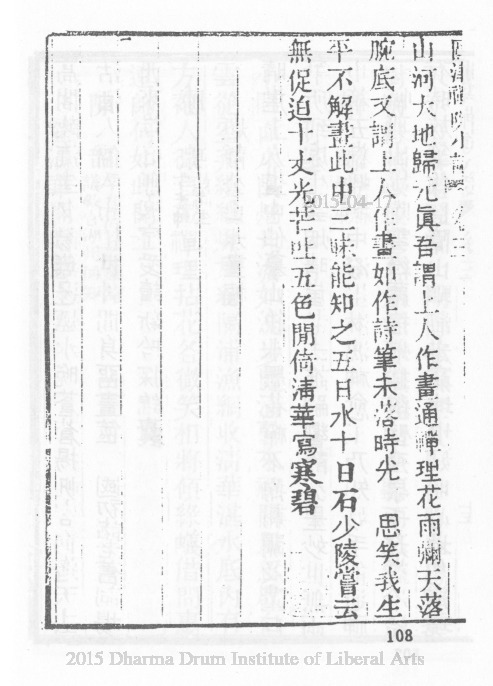 山河大地歸元眞吾謂上人作畫通禪理花雨彌天落
腕底又謂上人作畫如作詩筆未落時先 思笑我生
平不解畫此中三昧能知之五日水十日石少陵嘗云
無促迫十丈光芒吐五色閒倚淸華寫寒碧
2015-04-17
108
2015 Dharma Drum Institute of Liberal Arts